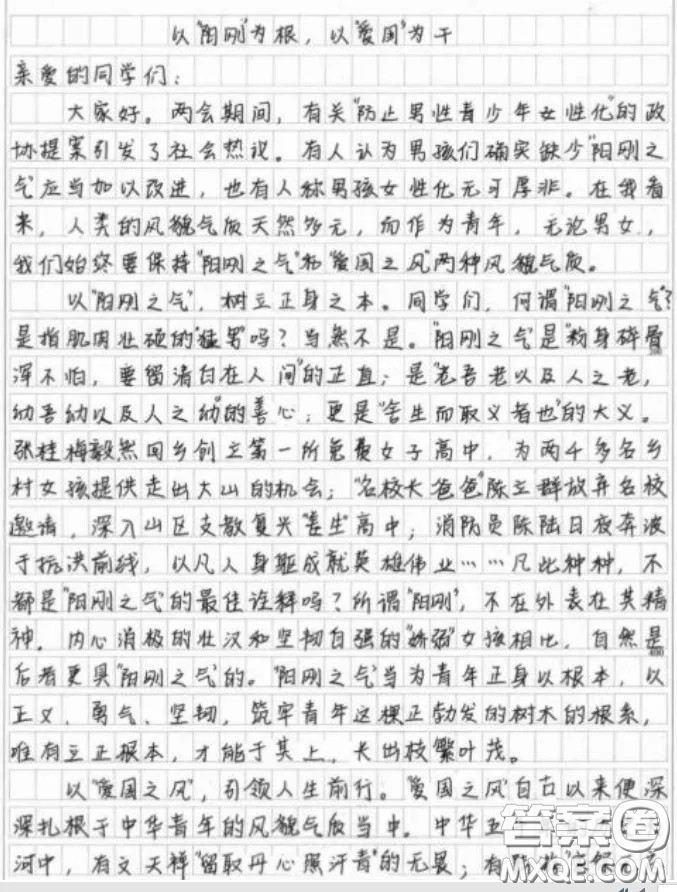 以"阳刚"为根，以"爱国"为干
亲爱的同学们：
大家好。两会期间，有关"防止男性青少年女性化"的政
协提案引发了社会热议。有人认为男孩们确实缺少"阳刚之
气"应当加以改进，也有人称男孩女性化无可厚非。在我看
来，人类的风貌气质天然多元，而作为青年，无论男女，
我们始终要保持"阳刚之气"和"爱国之风"两种风貌气质。
以"阳刚之气"，树立正身之本。同学们，何谓"阳刚之气"？
是指肌肉壮硕的"猛男"吗？当然不是。"阳刚之气"是"粉身碎骨
浑不怕，要留清白在人间"的正直；是"老吾老以及人之老，
幼吾幼以及人之幼"的善心；更是"舍生而取义者也"的大义。
张桂梅毅然回乡创立第一所免费女子高中，为两千多名乡
村女孩提供走出大山的机会；"名校长爸爸"陈立群放弃名校
邀请，深入山区支教复兴"差生"高中；消防员陈陆日夜奔波
于抗洪前线，以凡人身躯成就英雄伟业……凡此种种，不
都是"阳刚之气"的最佳诠释吗？所谓"阳刚"，不在外表在其精
神。内心消极的壮汉和坚韧自强的"娇弱"女孩相比，自然是
后者更具"阳刚之气"的。"阳刚之气"当为青年正身以根本，以
正义、勇气、坚韧，筑牢青年这棵正勃发的树木的根系，
唯有立正根本，才能于其上，长出枝繁叶茂。
以"爱国之风"，引领人生前行。"爱国之风"自古以来便深
深扎根于中华青年的风貌气质当中。中华五
河中，有文天祥"留取丹心照汗青"的无畏；有
答案圈
MXQE.COM